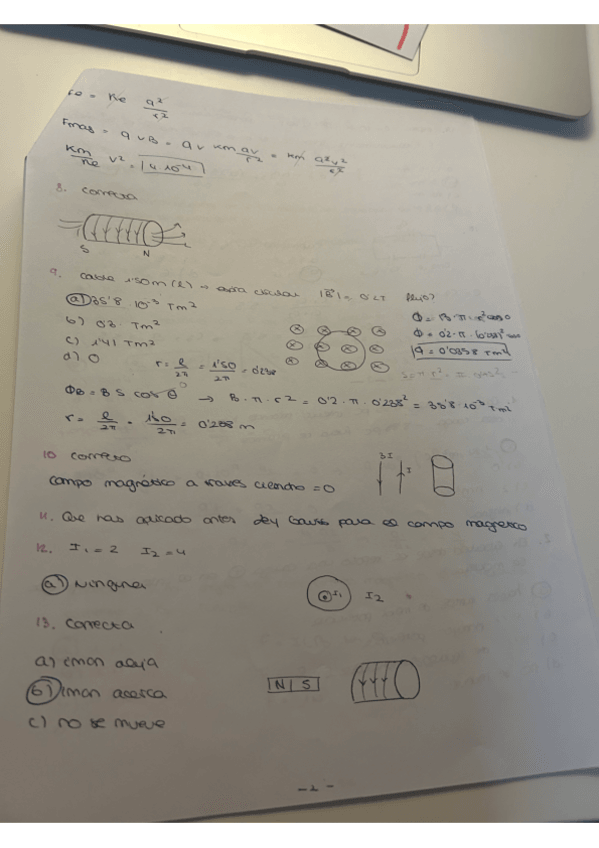 Fe = Ke q²/r²
Fmag = q v B = q v Km qv/r² = Km q²v²/r²
Km/Ke v² = 4·10⁻⁴
8. correcta
S N
9. cable 1'50 m (l) → |B| = 0'2T flujo?
a) 35'8 10⁻³ Tm²
b) 0'3 Tm²
c) 1'41 Tm²
d) 0
r = l/2π = 1'50/2π = 0'238
Φ = B·π·r² cos 0
Φ = 0'2·π·(0'238)² cos
Φ = 0'0358 Tm²
ΦB = B S cos θ → B·π·r² = 0'2·π·0'238² = 35'8·10⁻³ Tm²
0
r = l/2π = 1'50/2π = 0'238 m
10 correcto
3I I
campo magnético a través cilindro = 0
11. Que has aplicado antes ley Gauss para el campo magnetico
12. I₁ = 2 I₂ = 4
a) Ninguna
I₁ I₂
13. Correcta
a) iman aleja
b) iman acerca
N S
c) no se mueve